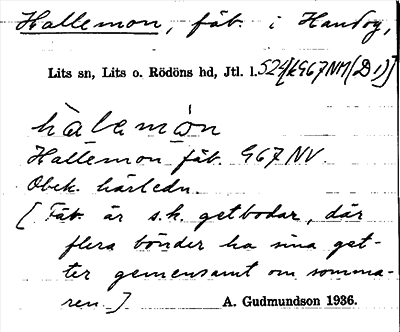 Hallemon, fäb. i Handog,
Lits sn, Lits o. Rödöns hd, Jtl. l. S24
hàlemòn
Hallemon fäb. G67 NV.
Obek. härledn.
[Fäb. är s.k. getbodar, där
flera bönder ha sina get-
ter gemensamt om somma-
ren.] A. Gudmundson 1936.